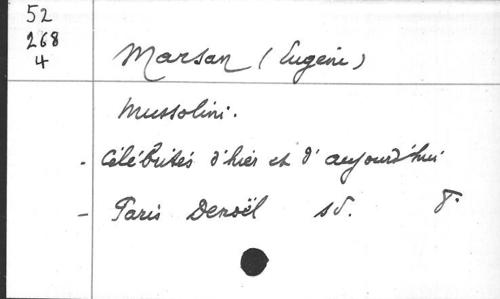 52
268
4
Marsan (Eugène)
Mussolini.
- Célébrités d'hier et d'aujourd'hui
- Paris Denoël sd. 8°